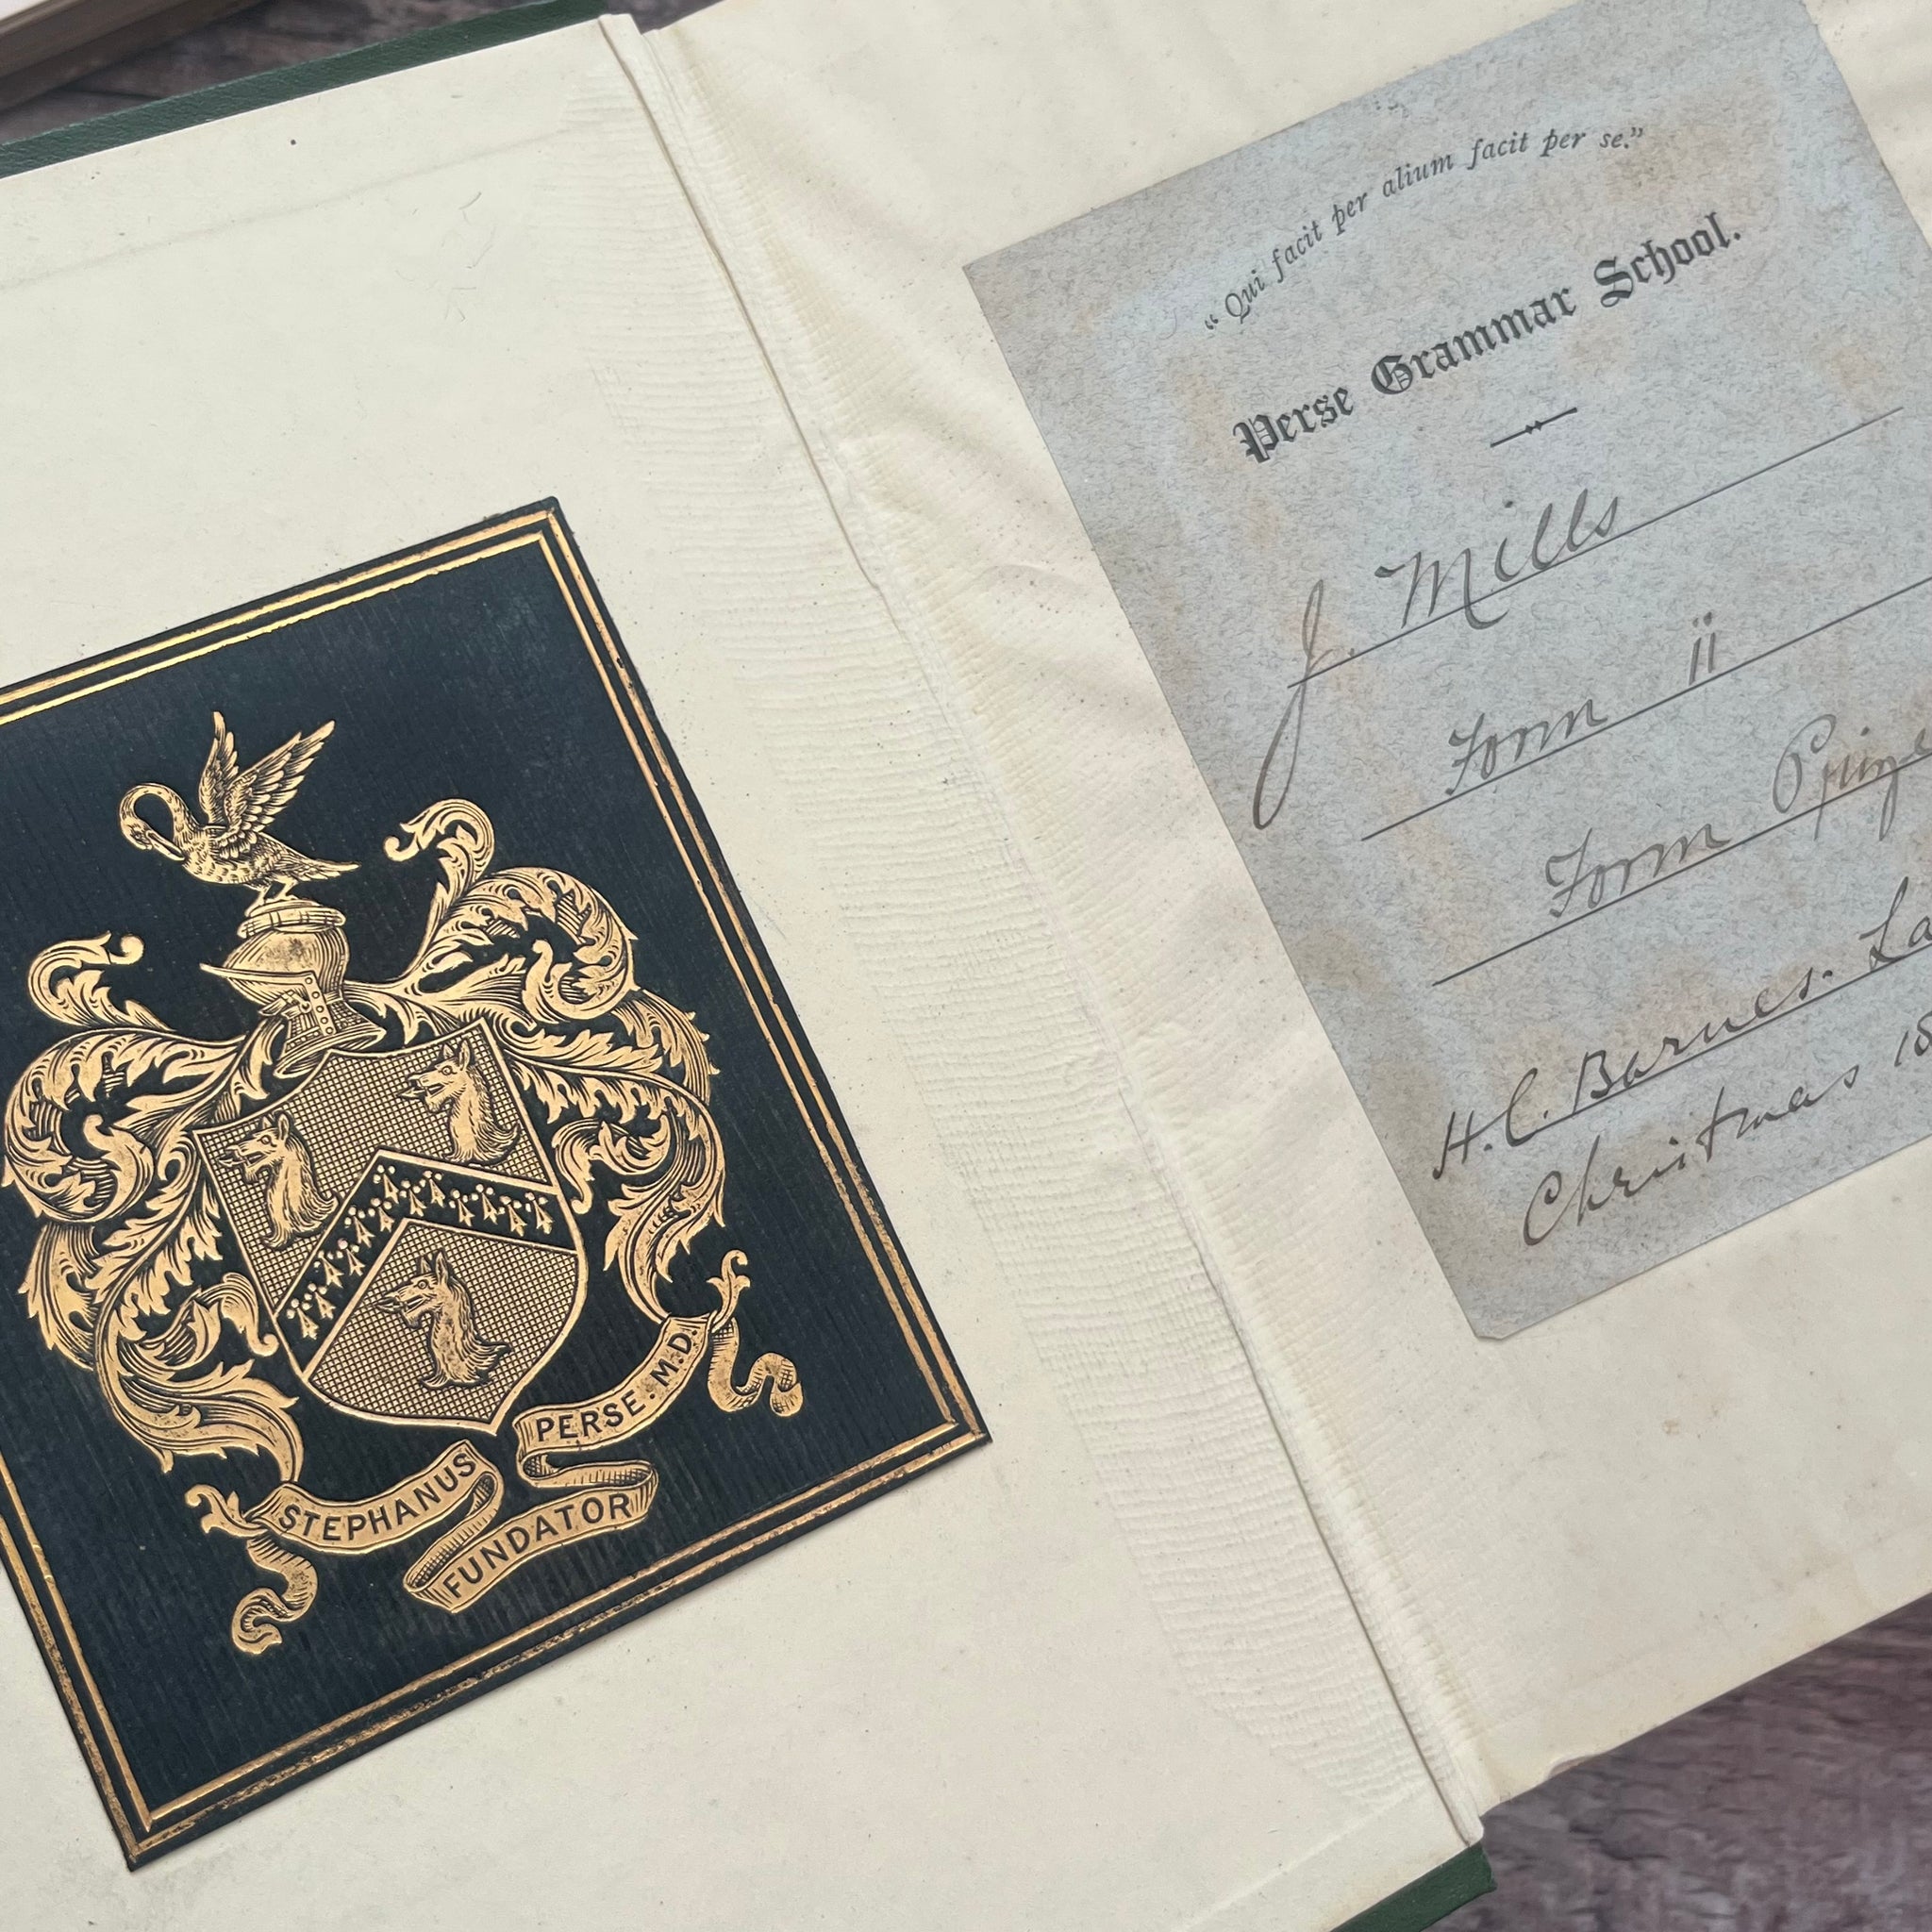 STEPHANUS PERSE. M.D.
FUNDATOR
"Qui facit per alium facit per se."
Perse Grammar School.
J. Mills
Form ii
Form Prize
H. C. Barnes-La
Christmas 18